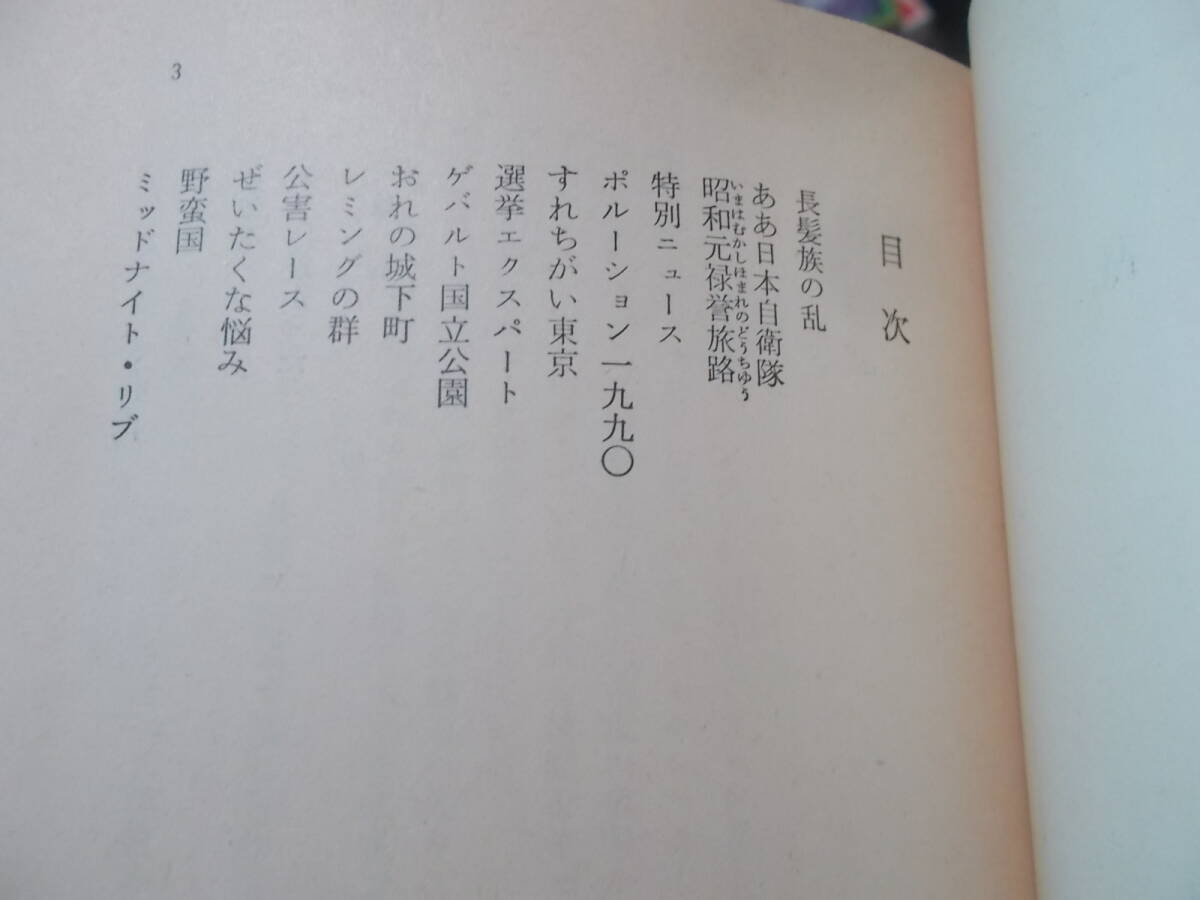 目次
長髪族の乱
ああ日本自衛隊
昭和元禄誉旅路
いまはむかしほまれのどうちゆう
特別ニュース
ポルーション一九九〇
すれちがい東京
選挙エクスパート
ゲバルト国立公園
おれの城下町
レミングの群
公害レース
ぜいたくな悩み
野蛮国
ミッドナイト・リブ
3